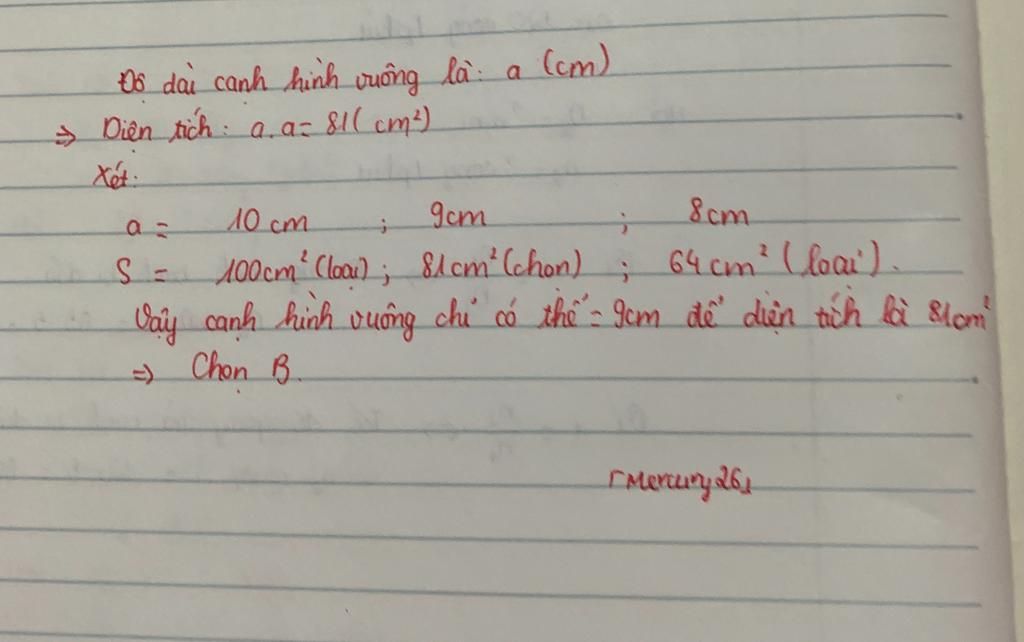 Độ dài cạnh hình vuông là: a (cm)
⇒ Diện tích: a.a = 81 (cm²)
Xét:
a = 10 cm ; 9cm ; 8cm
S = 100cm² (loại) ; 81cm² (chọn) ; 64cm² (loại).
Vậy cạnh hình vuông chỉ có thể = 9cm để diện tích là 81cm²
⇒ Chọn B.
「Mercury26」